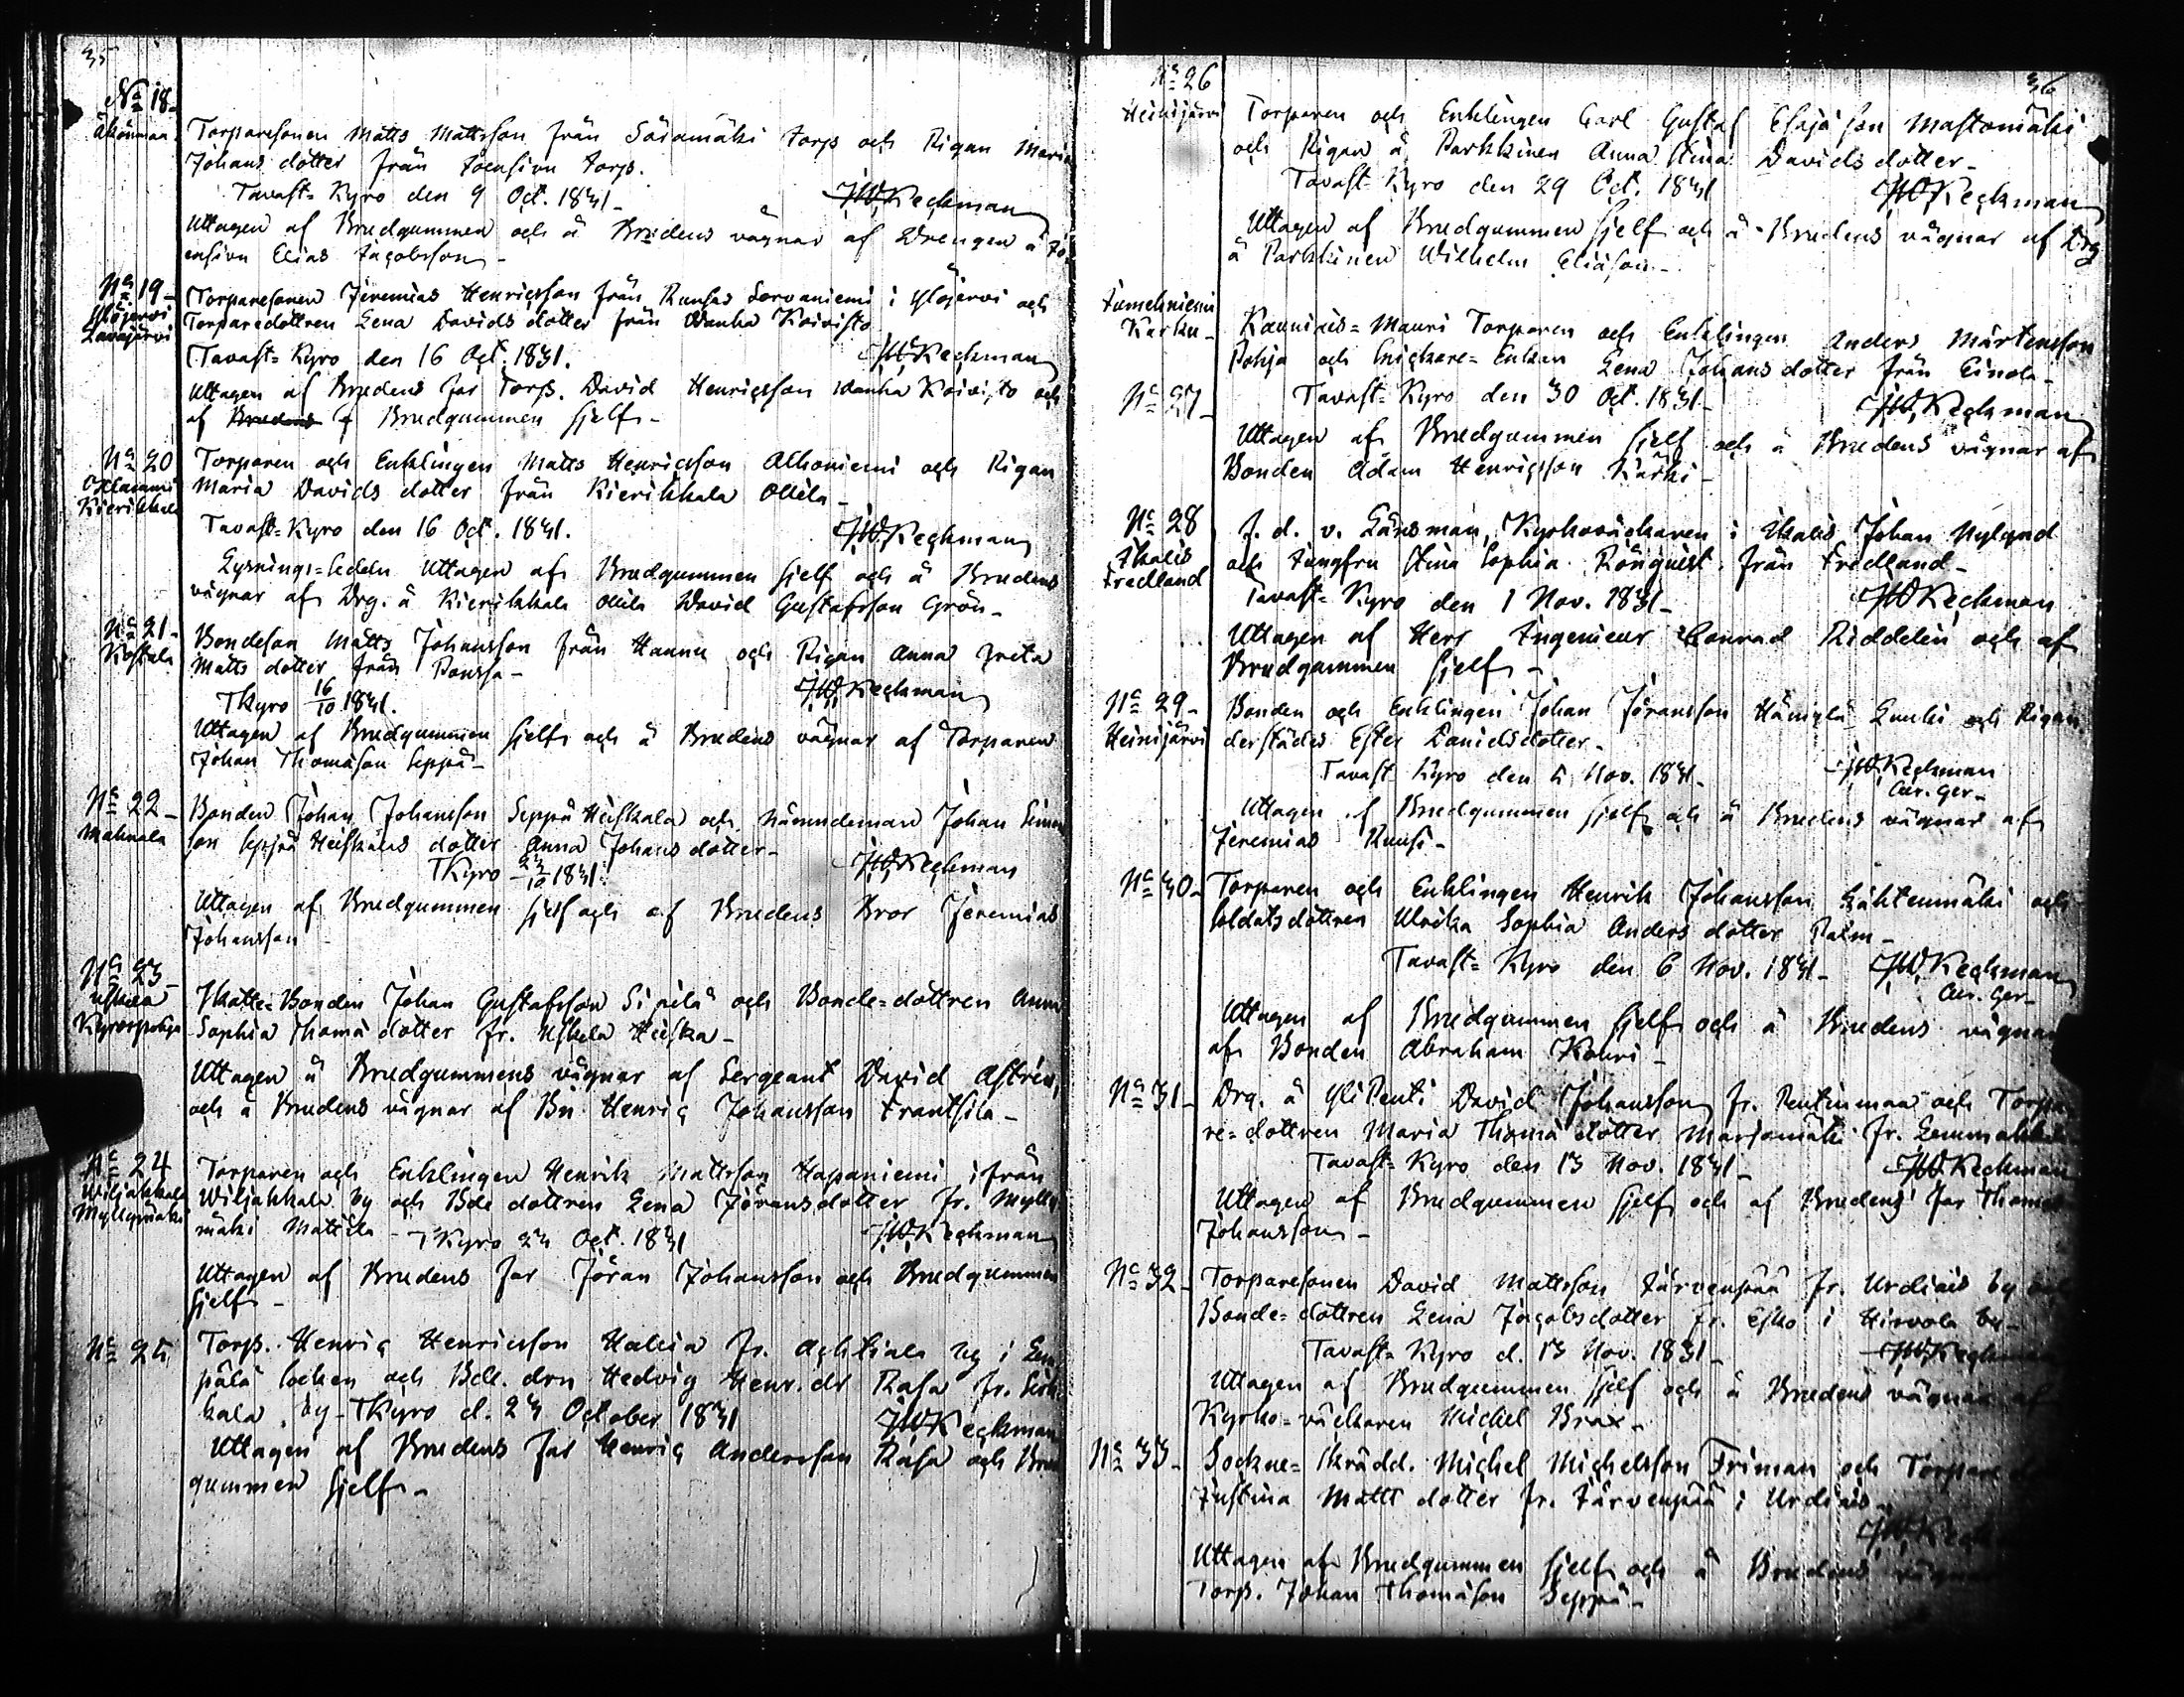 35
No 18
Torparesonen Matts Mattsson från Särämäki torp och Pigan Maria
Johans dotter från Joensivu torp.
Tavast-Kyro den 9 Oct. 1831
JWKeckman
Uttagen af Brudgummen och å Brudens vägnar af Drengen å Jo-
ensivu Elias Jacobsson
No 19
Ylöjervi
Lavajärvi
Torparesonen Jeremias Henricsson från Runsas Sorvaniemi i Ylöjervi och
Torparedottren Lena Davids dotter från Wanha Koivisto
Tavast-Kyro den 16 Oct. 1831.
JWKeckman
Uttagen af Brudens far Torp. David Henricsson Wanha Koivisto och
af Brudens Brudgummen sjelf
No 20
Kierikkala
Torparen och Enklingen Matts Henricsson Alhoniemi och Pigan
Maria Davids dotter från Kierikkala Ollila
Tavast-Kyro den 16 Oct. 1831.
JWKeckman
Lysnings-sedeln Uttagen af Brudgummen sjelf och å Brudens
vägnar af Drg. å Kierikkala Ollila David Gustafsson Grön
No 21
Koskela
Bondeson Matts Johansson från Hannu och Pigan Anna Greta
Matts dotter från
TKyro 16/10 1831.
JWKeckman
Uttagen af Brudgummen sjelf och å Brudens vägnar af Torparen
Johan Thomæson Seppä
No 22
Mahnala
Bonden Johan Johansson Seppä Heiskala och Nämndeman Johan Simo
son Seppä Heiskalas dotter Anna Johans dotter
TKyro 23/10 1831.
JWKeckman
Uttagen af Brudgummen sjelf och af Brudens Bror Jeremias
Johansson
No 23
Uskela
Kyröspohja
Skatte-Bonden Johan Gustafsson Sipilä och Bonde-dottren Anna
Sophia Thomæ dotter fr. Uskela Heiska
Uttagen å Brudgummens vägnar af Sergeant David Astrén,
och å Brudens vägnar af Bn Henric Johansson Frantsila
No 24
Wiljakkala
Myllymäki
Torparen och Enklingen Henrik Mattsson Hapaniemi ifrån
Wiljakkala by och Bde dottren Lena Jöransdotter fr. Mylly
mäki Mattila TKyro 23 Oct. 1831
JWKeckman
Uttagen af Brudens far Jöran Johansson och Brudgummen
sjelf
No 25
Torp. Henric Henricsson Hakia fr. Achtiala by i Lem
pälä socken och Bde. drn Hedvig Henr. dr Rasa fr.
kala by TKyro d. 23 October 1831
JWKeckman
Uttagen af Brudens far Henric Andersson Rasa och Brud
gummen sjelf
36
No 26
Heinijärvi
Torparen och Enklingen Carl Gustaf Esajæson Mastomäki
och Pigan å Parkkinen Anna Stina Davids dotter
Tavast-Kyro den 29 Oct. 1831
JWKeckman
Uttagen af Brudgummen sjelf och å Brudens vägnar af Drg
å Parkkinen Wilhelm Eliæson
Karku
No 27
Kauniais-Mauri Torparen och Enklingen Anders Mårtensson
Pohja och Snickare-Enkan Lena Johansdotter från Einola
Tavast-Kyro den 30 Oct. 1831
JWKeckman
Uttagen af Brudgummen sjelf och å Brudens vägnar af
Bonden Adam Henricsson Karhi
No 28
Ikalis
Fredland
T. d. v. Länsman, Kyrkoväckaren i Ikalis Johan Nylund
och Jungfru Stina Sophia Rönquist från Fredland
Tavast-Kyro den 1 Nov. 1831
JWKeckman
Uttagen af Herr Ingenieur Conrad Riddelin och af
Brudgummen sjelf
No 29
Heinijärvi
Bonden och Enklingen Johan Jöransson Hämylä Luuki och Pigan
derstädes Ester Danielsdotter
Tavast Kyro den 5 Nov. 1831
JWKeckman
Cur. ger.
Uttagen af Brudgummen sjelf och å Brudens vägnar af
Jeremias Ruusi
No 30
Torparen och Enklingen Henrik Johansson Lähteenmäki och
Soldatsdottren Ulrika Sophia Anders dotter Palm
Tavast-Kyro den 6 Nov. 1831
JWKeckman
Cur. Ger.
Uttagen af Brudgummen sjelf och å Brudens vägnar
af Bonden Abraham Kouri
No 31
Drg. å YliPenti David Johansson fr. Pentinmaa och Torpa
re-dottren Maria Thomæ dotter Marjomäki fr. Lemmakkala
Tavast-Kyro den 13 Nov. 1831
JWKeckman
Uttagen af Brudgummen sjelf och af Brudens far Thomas
Johansson
No 32
Torparesonen David Mattsson Järvenpää fr. Urdiais by och
Bonde-dottren Lena Jacobsdotter fr. Esko i Hirvola by
Tavast-Kyro d. 13 Nov. 1831
JWKeckman
Uttagen af Brudgummen sjelf och å Brudens vägnar af
Kyrko-väckaren Michel Brax
No 33
Sockne-skrädd. Michel Michelsson Friman och Torpare
Justina Matts dotter fr. Järvenpää i Urdiais
JWKeckman
Uttagen af Brudgummen sjelf och å Brudens vägnar
Torp. Johan Thomæson Seppä